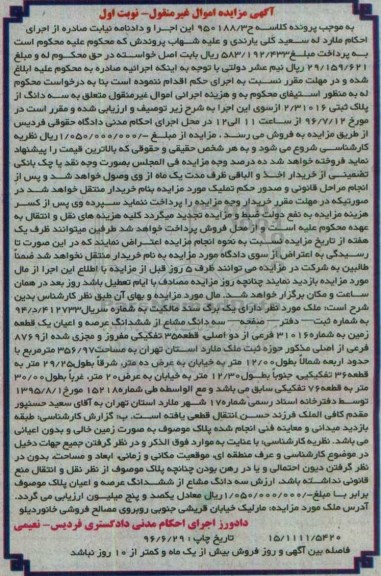 آگهی مزایده اموال غیرمنقول- نوبت اول
به موجب پرونده کلاسه ج۹۵۰۱۸۸/۳ این اجرا و دادنامه نیابت صادره از اجرای
احکام ملارد له سعید گلی یارندی و علیه شهاب پروندش که محکوم علیه محکوم است
به پرداخت مبلغ ۵۸۳/۱۹۲/۴۳۳ ریال بابت اصل خواسته در حق محکوم له و مبلغ
۲۹/۱۵۹/۶۲۱ ریال نیم عشر دولتی با توجه به اینکه اجرائیه صادره به محکوم علیه ابلاغ
شده و در مهلت مقرر نسبت به اجرای حکم اقدام ننموده است بنا به درخواست محکوم
له به منظور استیفای محکوم به و هزینه اجرائی اموال غیرمنقول متعلق به سه دانگ از
پلاک ثبتی ۲/۳۱۰۱۶ ازسوی این اجرا به شرح زیر توصیف و ارزیابی شده و مقرر است در
مورخ ۹۶/۷/۱۲ از ساعت ۱۱ الی ۱۲ در محل اجرای احکام مدنی دادگاه حقوقی فردیس
از طریق مزایده به فروش می رسد . مزایده از مبلغ -/۱/۰۵۰/۰۰۰/۰۰۰ ریال نظریه
کارشناسی شروع می شود و به هر شخص حقیقی و حقوقی که بالاترین قیمت را پیشنهاد
نماید فروخته خواهد شد ده درصد وجه مزایده فی المجلس بصورت وجه نقد یا چک بانکی
تضمینی از خریدار اخذ و الباقی ظرف مدت یک ماه از وی وصول خواهد شد و پس از
انجام مراحل قانونی و صدور حکم تملیک مورد مزایده بنام خریدار منتقل خواهد شد در
صورتیکه در مهلت مقرر خریدار وجه مزایده را پرداخت ننماید سپرده وی پس از کسر
هزینه مزایده به نفع دولت ضبط و مزایده تجدید میگردد کلیه هزینه های نقل و انتقال به
عهده محکوم علیه است و از محل فروش پرداخت خواهد شد طرفین میتوانند ظرف یک
هفته از تاریخ مزایده نسبت به نحوه انجام مزایده اعتراض نمایند که در این صورت تا
رسیدگی به اعتراض از سوی دادگاه مورد مزایده به نام خریدار منتقل نخواهد شد ضمناً
طالبین به شرکت در مزایده می توانند ظرف ۵ روز قبل از مزایده با اطلاع این اجرا از مال
مورد مزایده بازدید نمایند چنانچه روز مزایده مصادف با ایام تعطیل باشد روز بعد در همان
ساعت و مکان برگزار خواهد شد. مال مورد مزایده و بهای آن طبق نظر کارشناس بدین
شرح است: ملک مورد نظر دارای یک برگ سند مالکیت به شماره سریال۴۱۲۷۳۳-د/۹۴
به شماره ثبت--- دفتر--- صفحه--- سه دانگ مشاع از ششدانگ عرصه و اعیان یک قطعه
زمین به شماره۳۱۰۱۶ فرعی از دو اصلی، قطعه۳۵ تفکیکی مفروز و مجزی شده از۸۷۶۹
فرعی از اصلی مذکور حوزه ثبت ملک ملارد استان تهران به مساحت۳۵۶/۹۷ مترمربع با
حدود اربعه شمالاً بطول۱۲/۰۰ متر به خیابان به عرض ده متر، شرقاً بطول۲۹/۲۵ متر به
قطعه۳۶ تفکیکی، جنوبا بطول۱۲/۳۰ متر به خیابان به عرض۲۰ متر، غرباً بطول۳۰/۰۰
متر به قطعه۷۶ تفکیکی سابق می باشد و مع الواسطه طی شماره۱۵۲۰۱۸ مورخ۱۳۹۵/۸/۱
توسط دفترخانه اسناد رسمی شماره۱۷ شهر ملارد استان تهران به آقای سعید حسنپور
مقدم کافی الملک فرزند حسن انتقال قطعی یافته است. ب: گزارش کارشناسی: طبقه
بازدید میدانی و معاینه فنی انجام شده پلاک موصوف به صورت زمین خالی و بدون اعیانی
می باشد. نظریه کارشناسی: با عنایت به موارد فوق الذکر و در نظر گرفتن جمیع جهات دخیل
در موضوع کارشناسی و عرف منطقه ای، موقعیت مکانی و زمانی، ابعاد و مساحت، بدون در
نظر گرفتن دیون احتمالی و یا در رهن بودن چنانچه پلاک موصوف از نظر نقل و انتقال منع
قانونی نداشته باشد، ارزش سه دانگ مشاع از ششدانگ عرصه و اعیان پلاک موصوف
برابر با مبلغ-/۱/۰۵۰/۰۰۰/۰۰۰ریال معادل یکصد و پنج میلیون ارزیابی می گردد.
آدرس ملک مورد مزایده: مارلیک خیابان قریشی جنوبی روبروی مصالح فروشی خانوردیلو
دادورز اجرای احکام مدنی دادگستری فردیس- نعیمی
۱۵/۱۱۱۱/۵۴۲۰ تاریخ چاپ : ۹۶/۶/۲۹
فاصله بین آگهی و روز فروش بیش از یک ماه و کمتر از ۱۰ روز نباشد